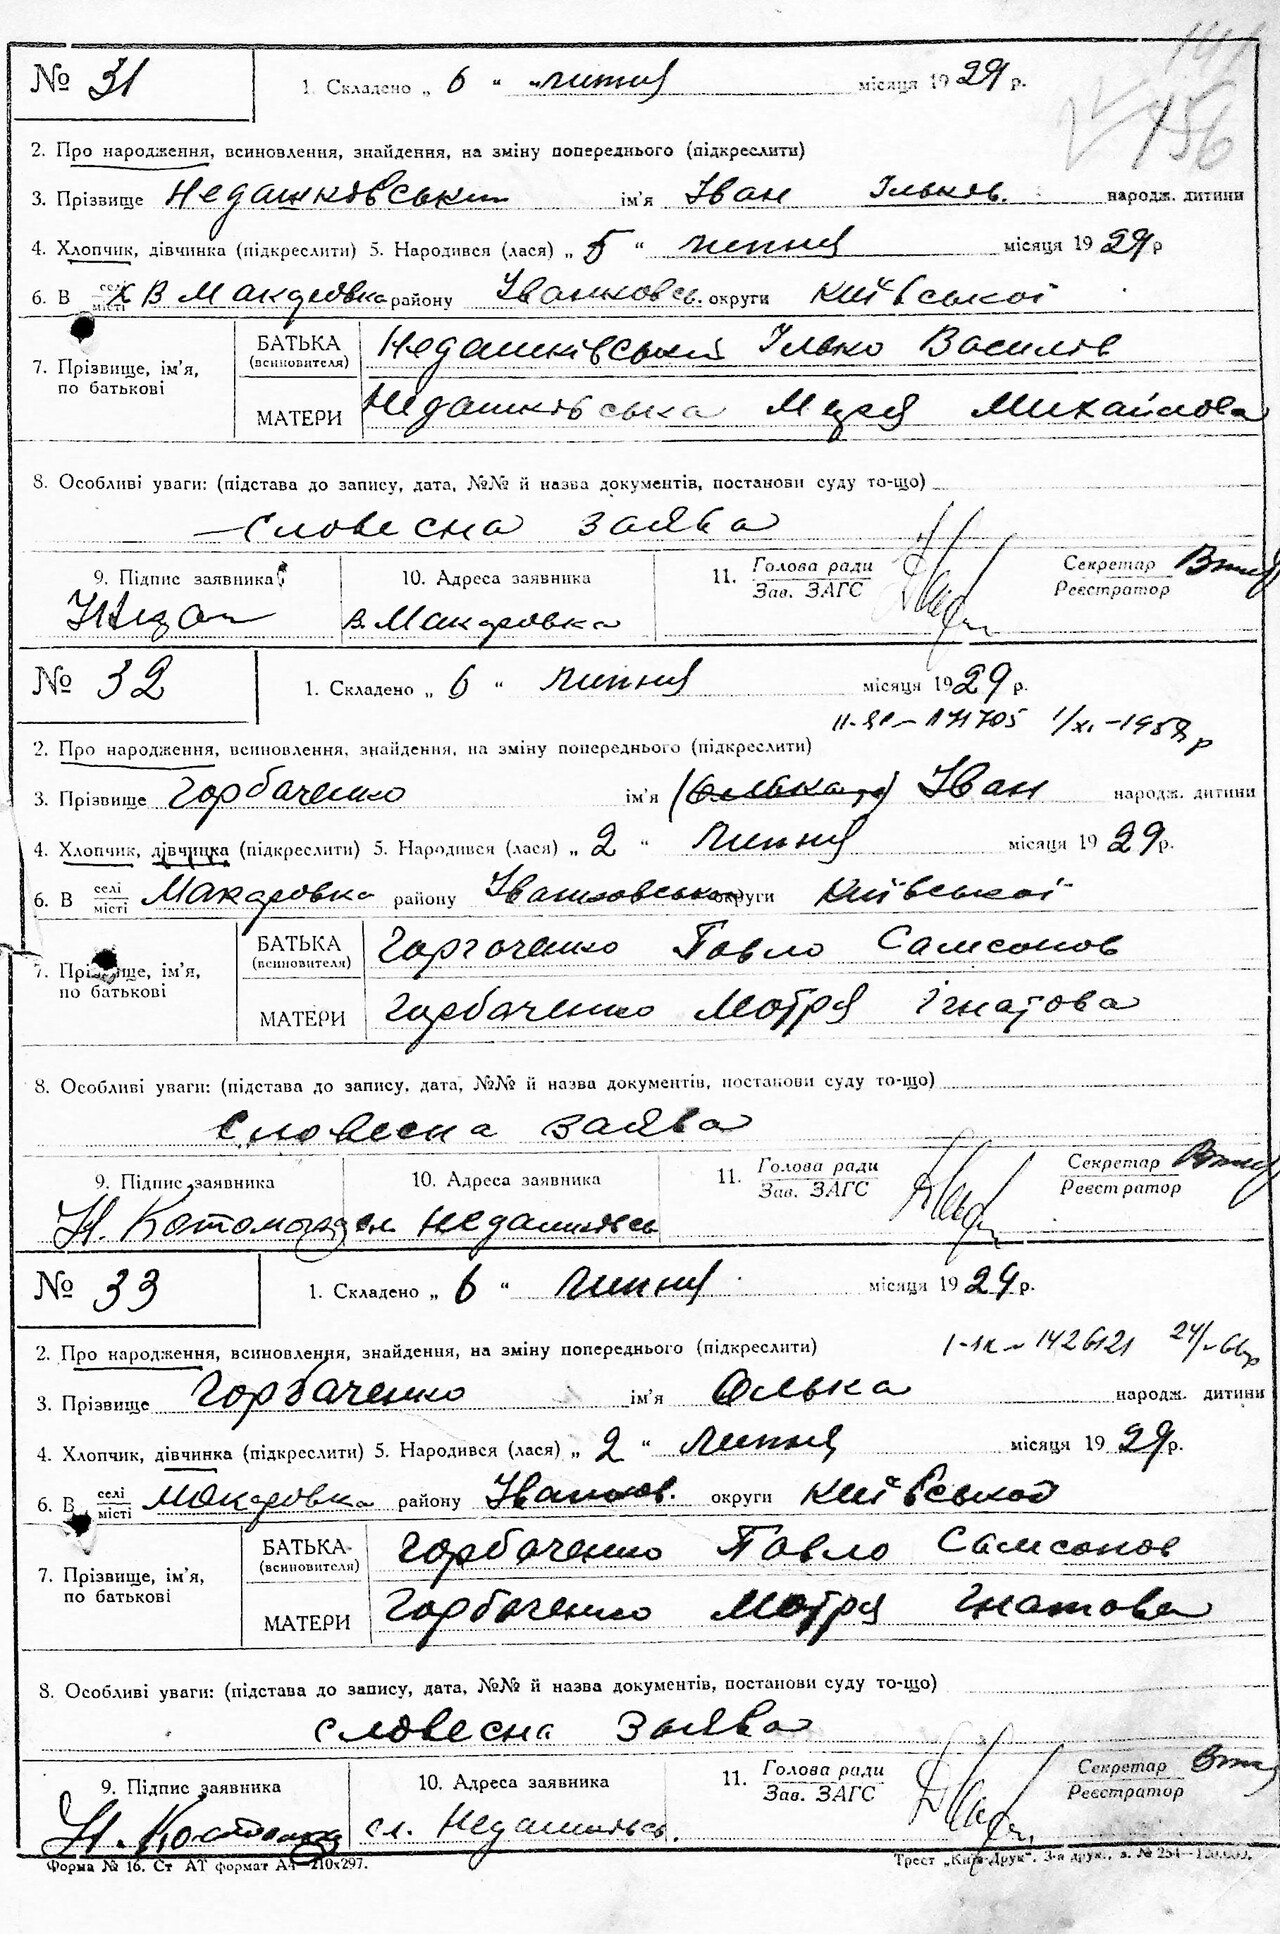 141
№ 31 1. Складено „ 6 “ липня місяця 1929 р.
156
2. Про народження, всиновлення, знайдення, на зміну попереднього (підкреслити)
3. Прізвище Недашковський ім'я Іван Ільков. народж. дитини
4. Хлопчик, дівчинка (підкреслити) 5. Народився (лася) „ 5 “ липня місяця 1929 р
6. В селі місті х В Макаровка району Іванковсь. округи Київської
7. Прізвище, ім'я, по батькові
БАТЬКА (всиновителя) Недашківський Ілько Василов
МАТЕРИ Недашковська Марія Михайлова
8. Особливі уваги: (підстава до запису, дата, №№ й назва документів, постанови суду то-що)
словесна заява
9. Підпис заявника 10. Адреса заявника 11. Голова ради Зав. ЗАГС Секретар Реєстратор
в. Макаровка
№ 32 1. Складено „ 6 “ липня місяця 1929 р.
II-ЯР-171705 1/XI-1958 р
2. Про народження, всиновлення, знайдення, на зміну попереднього (підкреслити)
3. Прізвище Горбаченко ім'я (Олька) Іван народж. дитини
4. Хлопчик, дівчинка (підкреслити) 5. Народився (лася) „ 2 “ липня місяця 1929 р.
6. В селі місті Макаровка району Іванковської округи Київської
7. Прізвище, ім'я, по батькові
БАТЬКА (всиновителя) Горгаченко Павло Самсонов
МАТЕРИ Горбаченко Мотря Ігнатова
8. Особливі уваги: (підстава до запису, дата, №№ й назва документів, постанови суду то-що)
словесна заява
9. Підпис заявника 10. Адреса заявника 11. Голова ради Зав. ЗАГС Секретар Реєстратор
Недашковсь
№ 33 1. Складено „ 6 “ липня місяця 1929 р.
2. Про народження, всиновлення, знайдення, на зміну попереднього (підкреслити) 1426121 24/
3. Прізвище Горбаченко ім'я Олька народж. дитини
4. Хлопчик, дівчинка (підкреслити) 5. Народився (лася) „ 2 “ липня місяця 1929 р.
6. В селі місті Макаровка району Іванков. округи Київської
7. Прізвище, ім'я, по батькові
БАТЬКА (всиновителя) Горбаченко Павло Самсонов
МАТЕРИ Горбаченко Мотря Гнатова
8. Особливі уваги: (підстава до запису, дата, №№ й назва документів, постанови суду то-що)
словесна заява
9. Підпис заявника 10. Адреса заявника 11. Голова ради Зав. ЗАГС Секретар Реєстратор
сл. Недашковсь.
Форма № 16. Ст АТ формат А4—210х297. Трест „Київ-Друк“. 3-я друк., з. № 254—120.000.